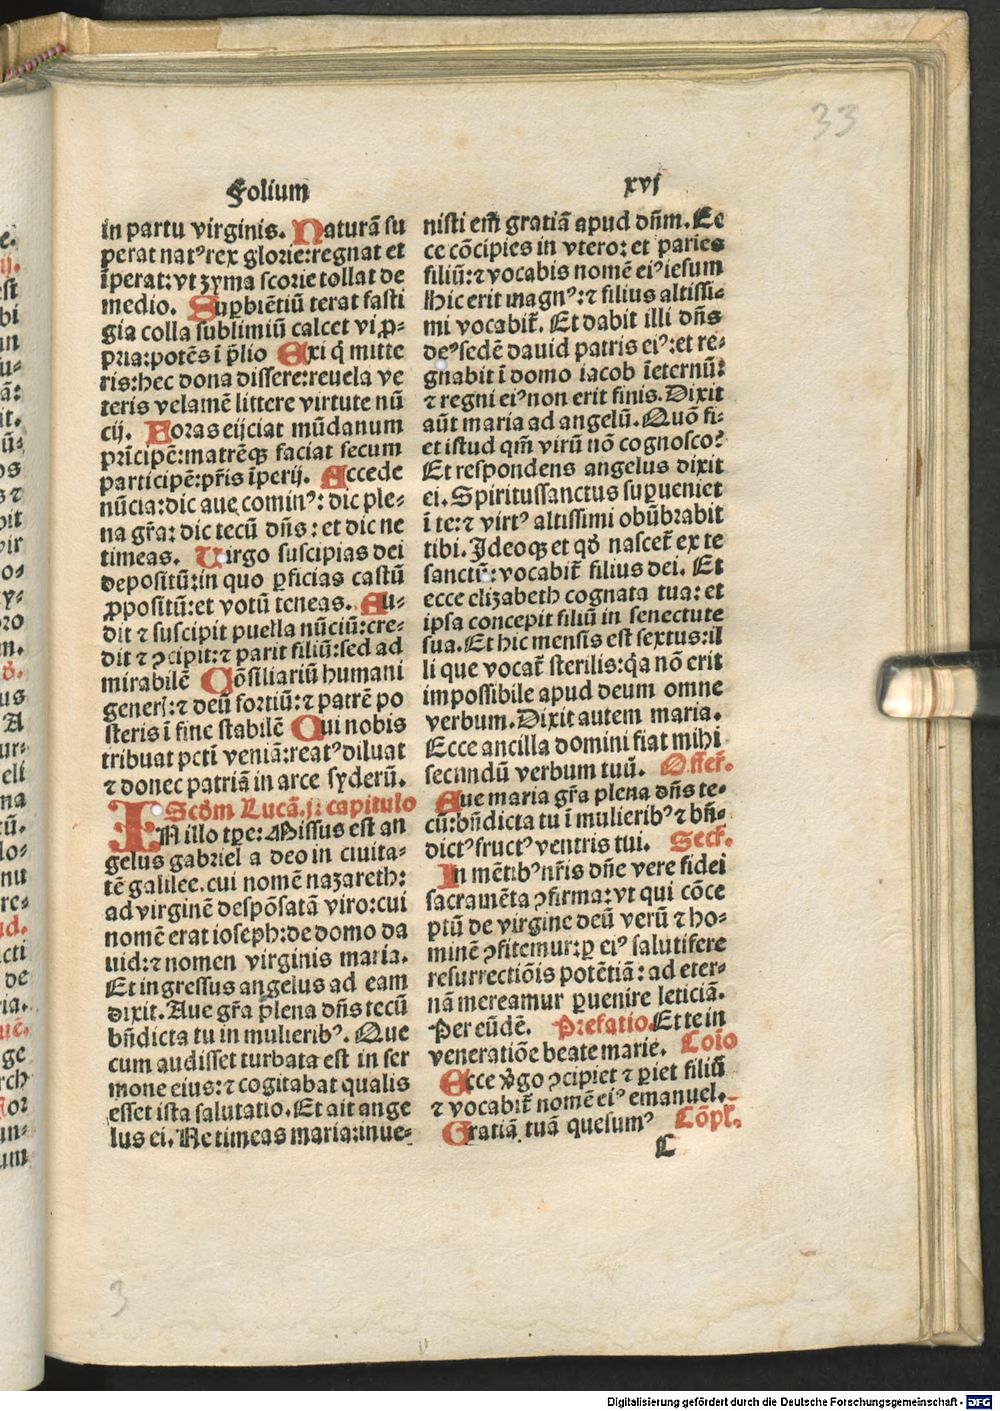 33
Folium xvj
in partu virginis. Naturā su
perat natꝰ rex glorie: regnat et
īperat: vt zyma scorie tollat de
medio. Suꝑbiētiū terat fasti
gia colla sublimiū calcet vi ꝓ-
pria: potēs ī p̄lio Exi q̄ mitte
ris: hec dona dissere: reuela ve
teris velamē littere virtute nū
cij. Foras eijciat mūdanum
prīcipē: matrēqꝫ faciat secum
participē: pr̄is īperij. Accede
nūcia: dic aue cominꝰ: dic ple-
na gr̄a: dic tecū dn̄s: et dic ne
timeas. Virgo suscipias dei
depositū: in quo ꝑficias castū
ꝓpositū: et votū teneas. Au-
dit ⁊ suscipit puella nūciū: cre-
dit ⁊ ꝯcipit: ⁊ parit filiū: sed ad
mirabilē Cōsiliariū humani
generis: ⁊ deū fortiū: ⁊ patrē po
steris ī fine stabilē Qui nobis
tribuat pctī veniā: reatꝰ diluat
⁊ donec patriā in arce syderū.
Scd̄m Lucā. j. capitulo
IN illo tp̄e: Missus est an
gelus gabriel a deo in ciuita-
tē galilee. cui nomē nazareth:
ad virginē despōsatā viro: cui
nomē erat ioseph: de domo da
uid: ⁊ nomen virginis maria.
Et ingressus angelus ad eam
dixit. Aue gr̄a plena dn̄s tecū
bn̄dicta tu in mulieribꝰ. Que
cum audisset turbata est in ser
mone eius: ⁊ cogitabat qualis
esset ista salutatio. Et ait ange
lus ei. Ne timeas maria: inue-
nisti em̄ gratiā apud dn̄m. Ec
ce cōcipies in vtero: et paries
filiū: ⁊ vocabis nomē eiꝰ iesum
hic erit magnꝰ: ⁊ filius altissi-
mi vocabit̄. Et dabit illi dn̄s
deꝰ sedē dauid patris eiꝰ: et re-
gnabit ī domo iacob ī eternū:
⁊ regni eiꝰ non erit finis. Dixit
aūt maria ad angelū. Quō fi-
et istud qm̄ virū nō cognosco?
Et respondens angelus dixit
ei. Spiritussanctus suꝑueniet
ī te: ⁊ virtꝰ altissimi obūbrabit
tibi. Ideoqꝫ et qd̄ nascet̄ ex te
sanctū: vocabit̄ filius dei. Et
ecce elizabeth cognata tua: et
ipsa concepit filiū in senectute
sua. Et hic mensis est sextus: il
li que vocat̄ sterilis: q̄a nō erit
impossibile apud deum omne
verbum. Dixit autem maria.
Ecce ancilla domini fiat mihi
secundū verbum tuū. Offer̄.
Aue maria gr̄a plena dn̄s te-
cū: bn̄dicta tu ī mulieribꝰ ⁊ bn̄-
dictꝰ fructꝰ ventris tui. Secr̄.
In mētibꝰ nr̄is dn̄e vere fidei
sacramēta ꝯfirma: vt qui cōce
ptū de virgine deū verū ⁊ ho-
minē ꝯfitemur: ꝑ eiꝰ salutifere
resurrectiōis potētiā: ad eter-
nā mereamur ꝑuenire leticiā.
Per eūdē. Prefatio. Et te in
veneratiōe beate marie. Coīo
Ecce v̄go ꝯcipiet ⁊ ꝑiet filiū
⁊ vocabit̄ nomē eiꝰ emanuel.
Gratiā tuā quesumꝰ Cōpl̄.
C
3
Digitalisierung gefördert durch die Deutsche Forschungsgemeinschaft - DFG